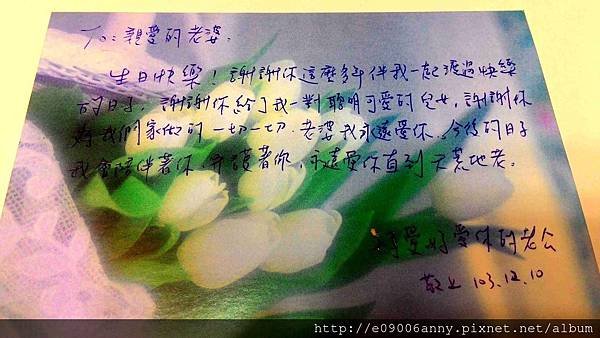 To: 親愛的老婆.
生日快樂! 謝謝你這麼多年伴我一起渡過快樂
的日子, 謝謝你給了我一對聰明可愛的兒女, 謝謝你
為我們家做的一切一切. 老婆我永遠愛你. 今後的日子
我會陪伴著你. 守護著你, 永遠愛你直到天荒地老。
好愛好愛你的老公
敬上 103.12.10
http://e09006anny.pixnet.net/album